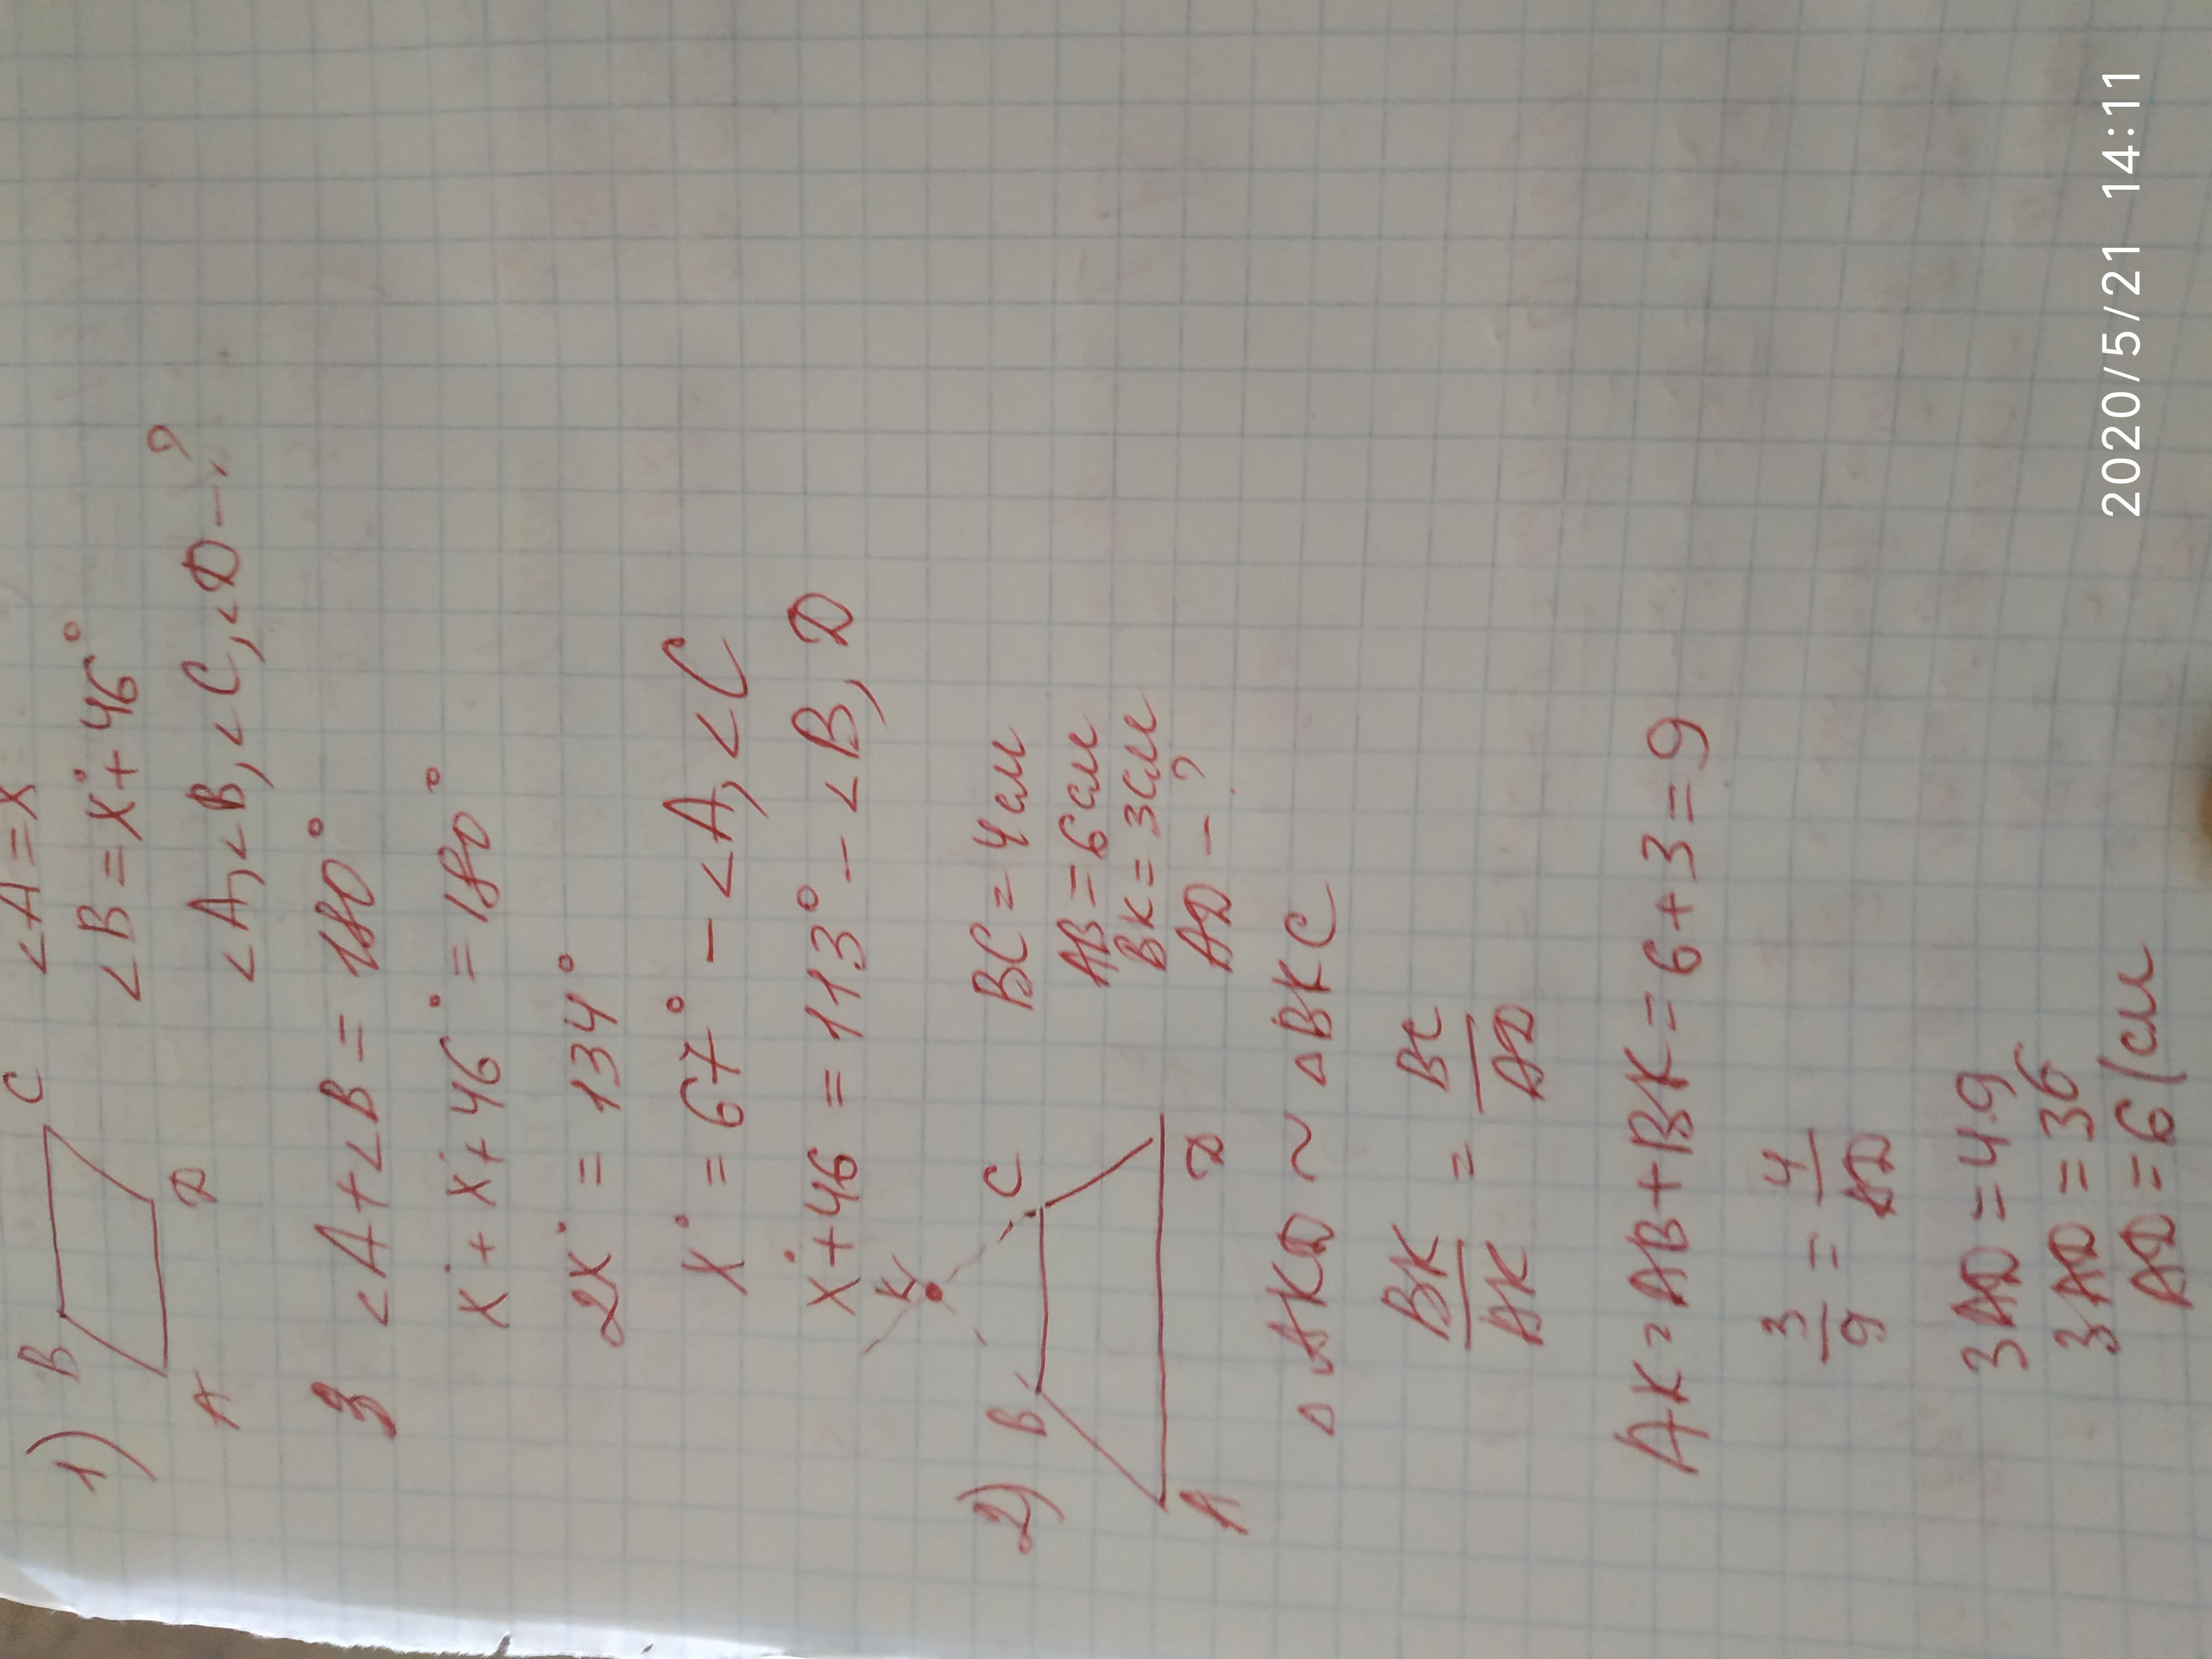 1) B C <A=x
A D <B=x°+46°
<A,<B,<C,<D-?
3 <A+<B=180°
x°+x°+46°=180°
2x°=134°
x°=67°-<A,<C
x°+46=113°-<B,D
2) B C K BC=4см
AB=6см
BK=3см
A D AD-?
△AKD~△BKC
BK/AK = BC/AD
AK=AB+BK=6+3=9
3/9=4/AD
3AD=4·9
3AD=36
AD=6(см
2020/5/21 14:11